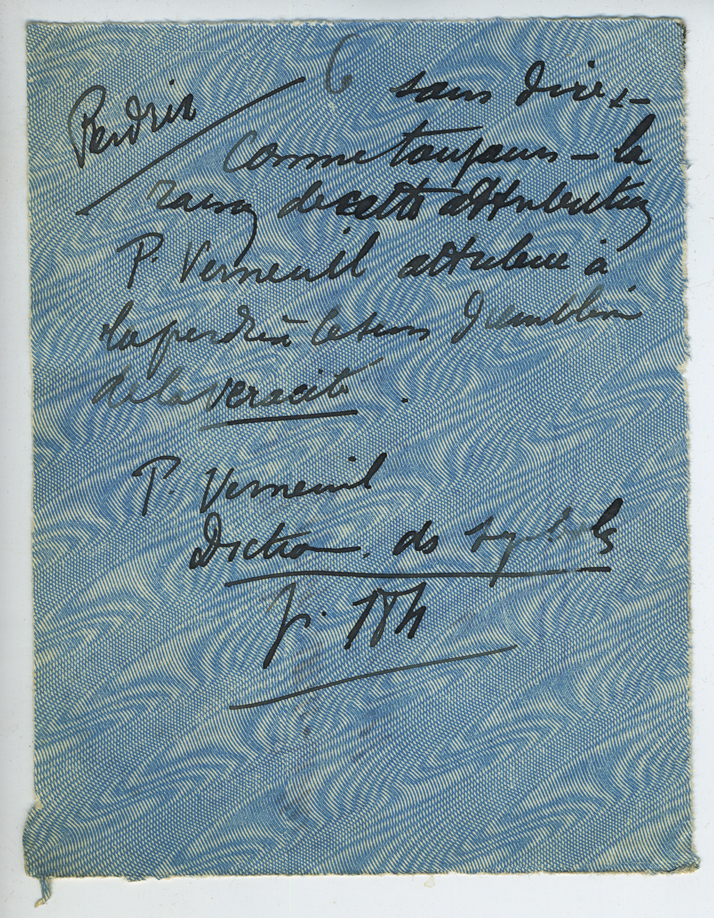 Perdrix
6 sans dire –
comme toujours – la
raison de cette attribution
P. Verneuil attribue à
la perdrix le sens d'emblème
de la véracité.
P. Verneuil
Diction. des symboles
p. 184